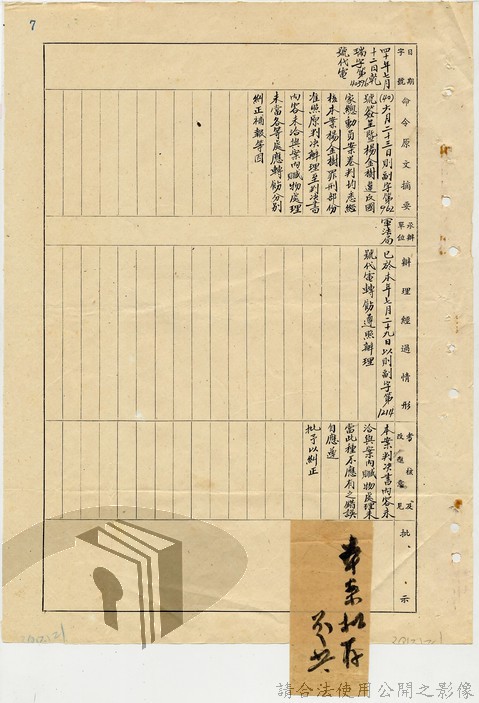 7
日期
字號
四十年七月
十二日乾
瑞字第40376
號代電
命令原文摘要
(40)六月二十三日則副字第962
號簽呈暨楊金樹違反國
家總動員案卷判均悉經
核本案楊金樹罪刑部份
准照原判決辦理至判決書
內容未洽與案內贓物處理
未當各等處應轉飭分別
糾正補報等因
承辦單位
軍法局
辦理經過情形
已於本年七月二十九日以則副字第1214
號代電轉飭遵照辦理
考核及
改進意見
本案判決書內容未
洽與案內贓物處理未
當此種不應有之錯誤
自應遵
批予以糾正
批示
奉案批存
請合法使用公開之影像